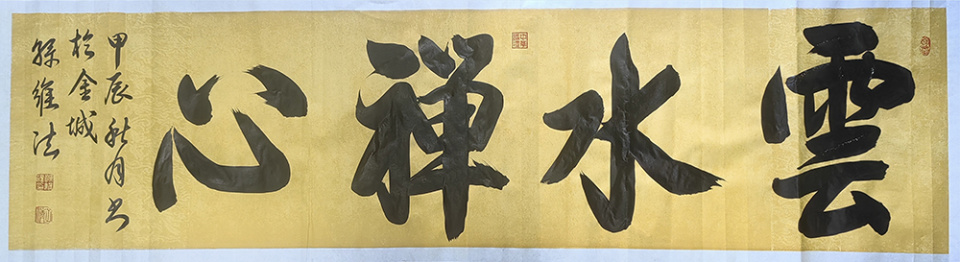 雲水禅心
甲辰秋月書
於金城
孫維法